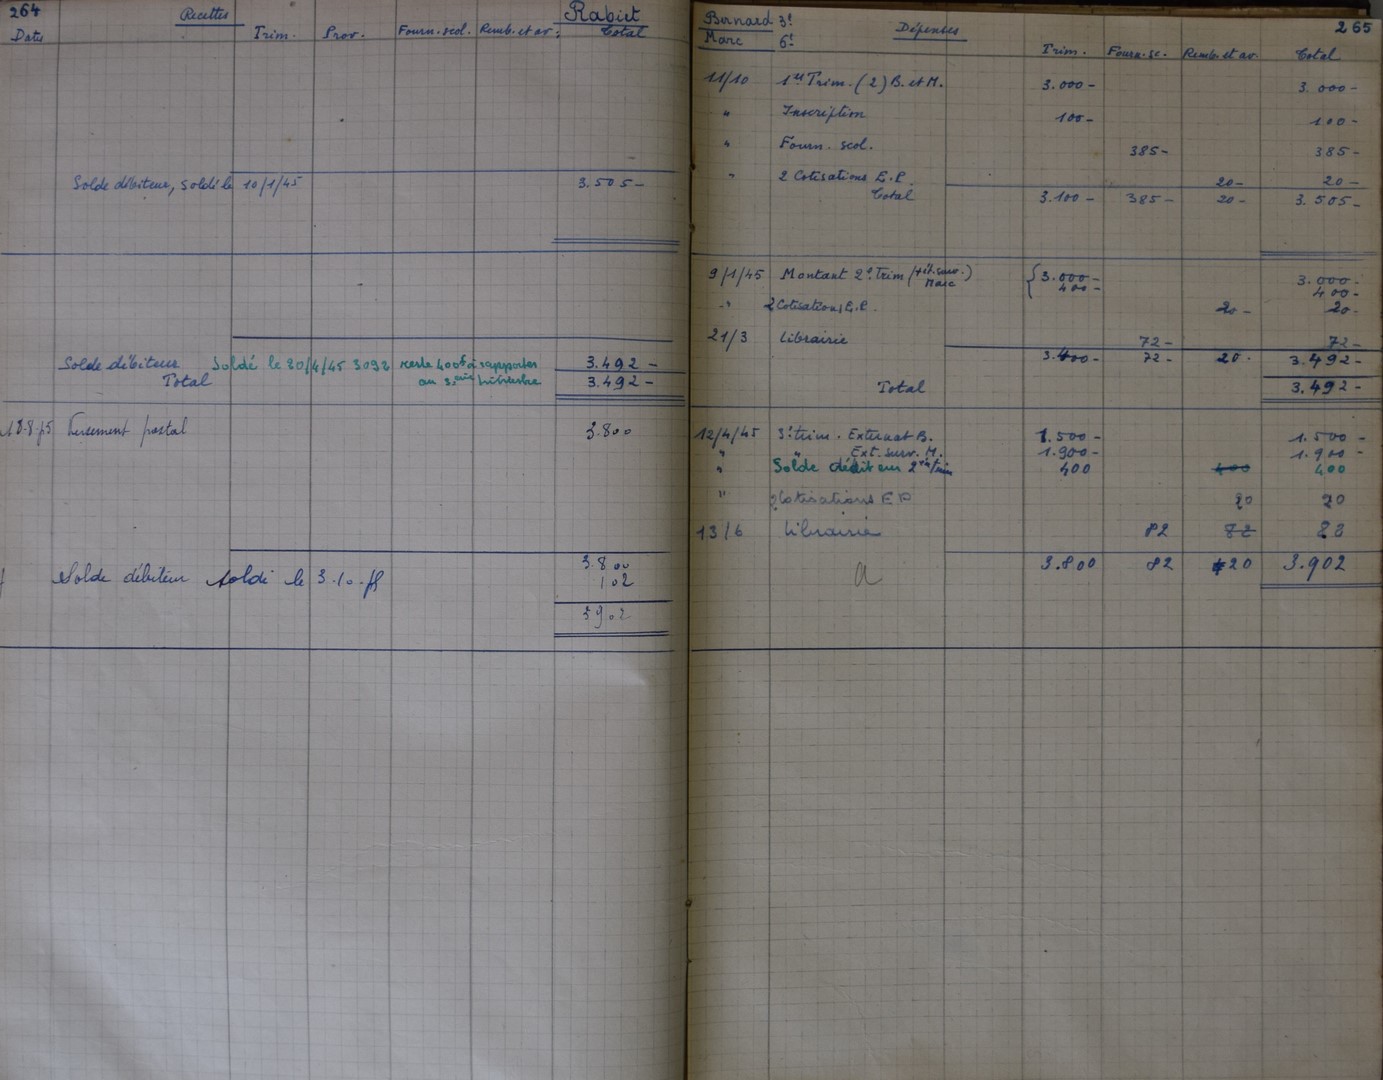 264 Recettes Rabiet
Dates Trim. Prov. Fourn. scol. Remb. et av. Total
Solde débiteur, soldé le 10/1/45 3.505-
Solde débiteur Soldé le 20/4/45 3092 reste 400f à rapporter 3.492-
Total au 3ème trimestre 3.492-
Versement postal 3.800
3.800
Solde débiteur soldé le 3.10. 102
3902
Bernard 3e Dépenses 265
Marc 6e Trim. Fourn. sc. Remb. et av. Total
11/10 1er Trim. (2) B. et M. 3.000- 3.000-
" Inscription 100- 100-
" Fourn. scol. 385- 385-
" 2 Cotisations E.P. 20- 20-
Total 3.100- 385- 20- 3.505-
9/1/45 Montant 2e Trim (+ ét. surv. Marc) { 3.000- 3.000-
400- 400-
" 2 Cotisations E.P. 20- 20-
21/3 Librairie 72- 72-
3.400- 72- 20- 3.492-
Total 3.492-
12/4/45 3e trim. Externat B. 1.500- 1.500-
" " Ext. surv. M. 1.900- 1.900-
" Solde débiteur 2em trim 400 400 400
" 2 Cotisations E P 20 20
13/6 Librairie 82 82
3.800 82 20 3.902
a